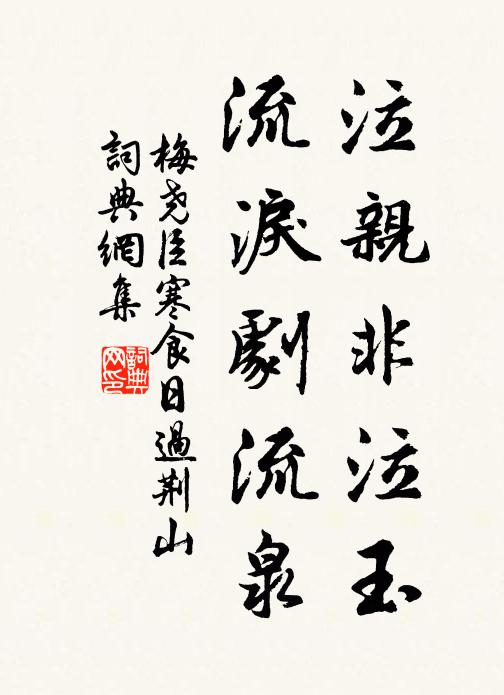 泣親非泣玉
流淚劇流泉
梅堯臣寒食日過荆山
詞典網集
詞典网印